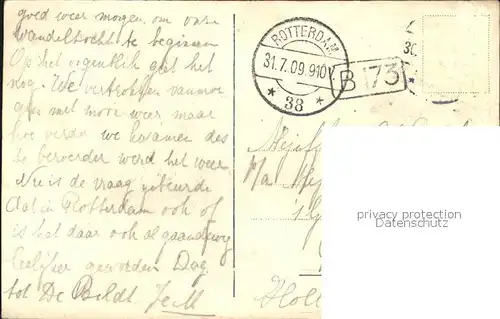 goed weer morgen om onze
wandeltocht te beginnen
Op het oogenblik giet het
nog. We vertrokken vanmor
gen met mooi weer maar
hoe verder we kwamen des
te beroerder werd het weer.
Nu is de vraag gebeurde
dat in Rotterdam ook of
is het daar ook al gaandeweg
leelijker geworden Dag
tot De Bildt. JeM
ROTTERDAM
31.7.09.910V
* 38 *
B 173
30
Mejuff
p/a
Holl
privacy protection
Datenschutz